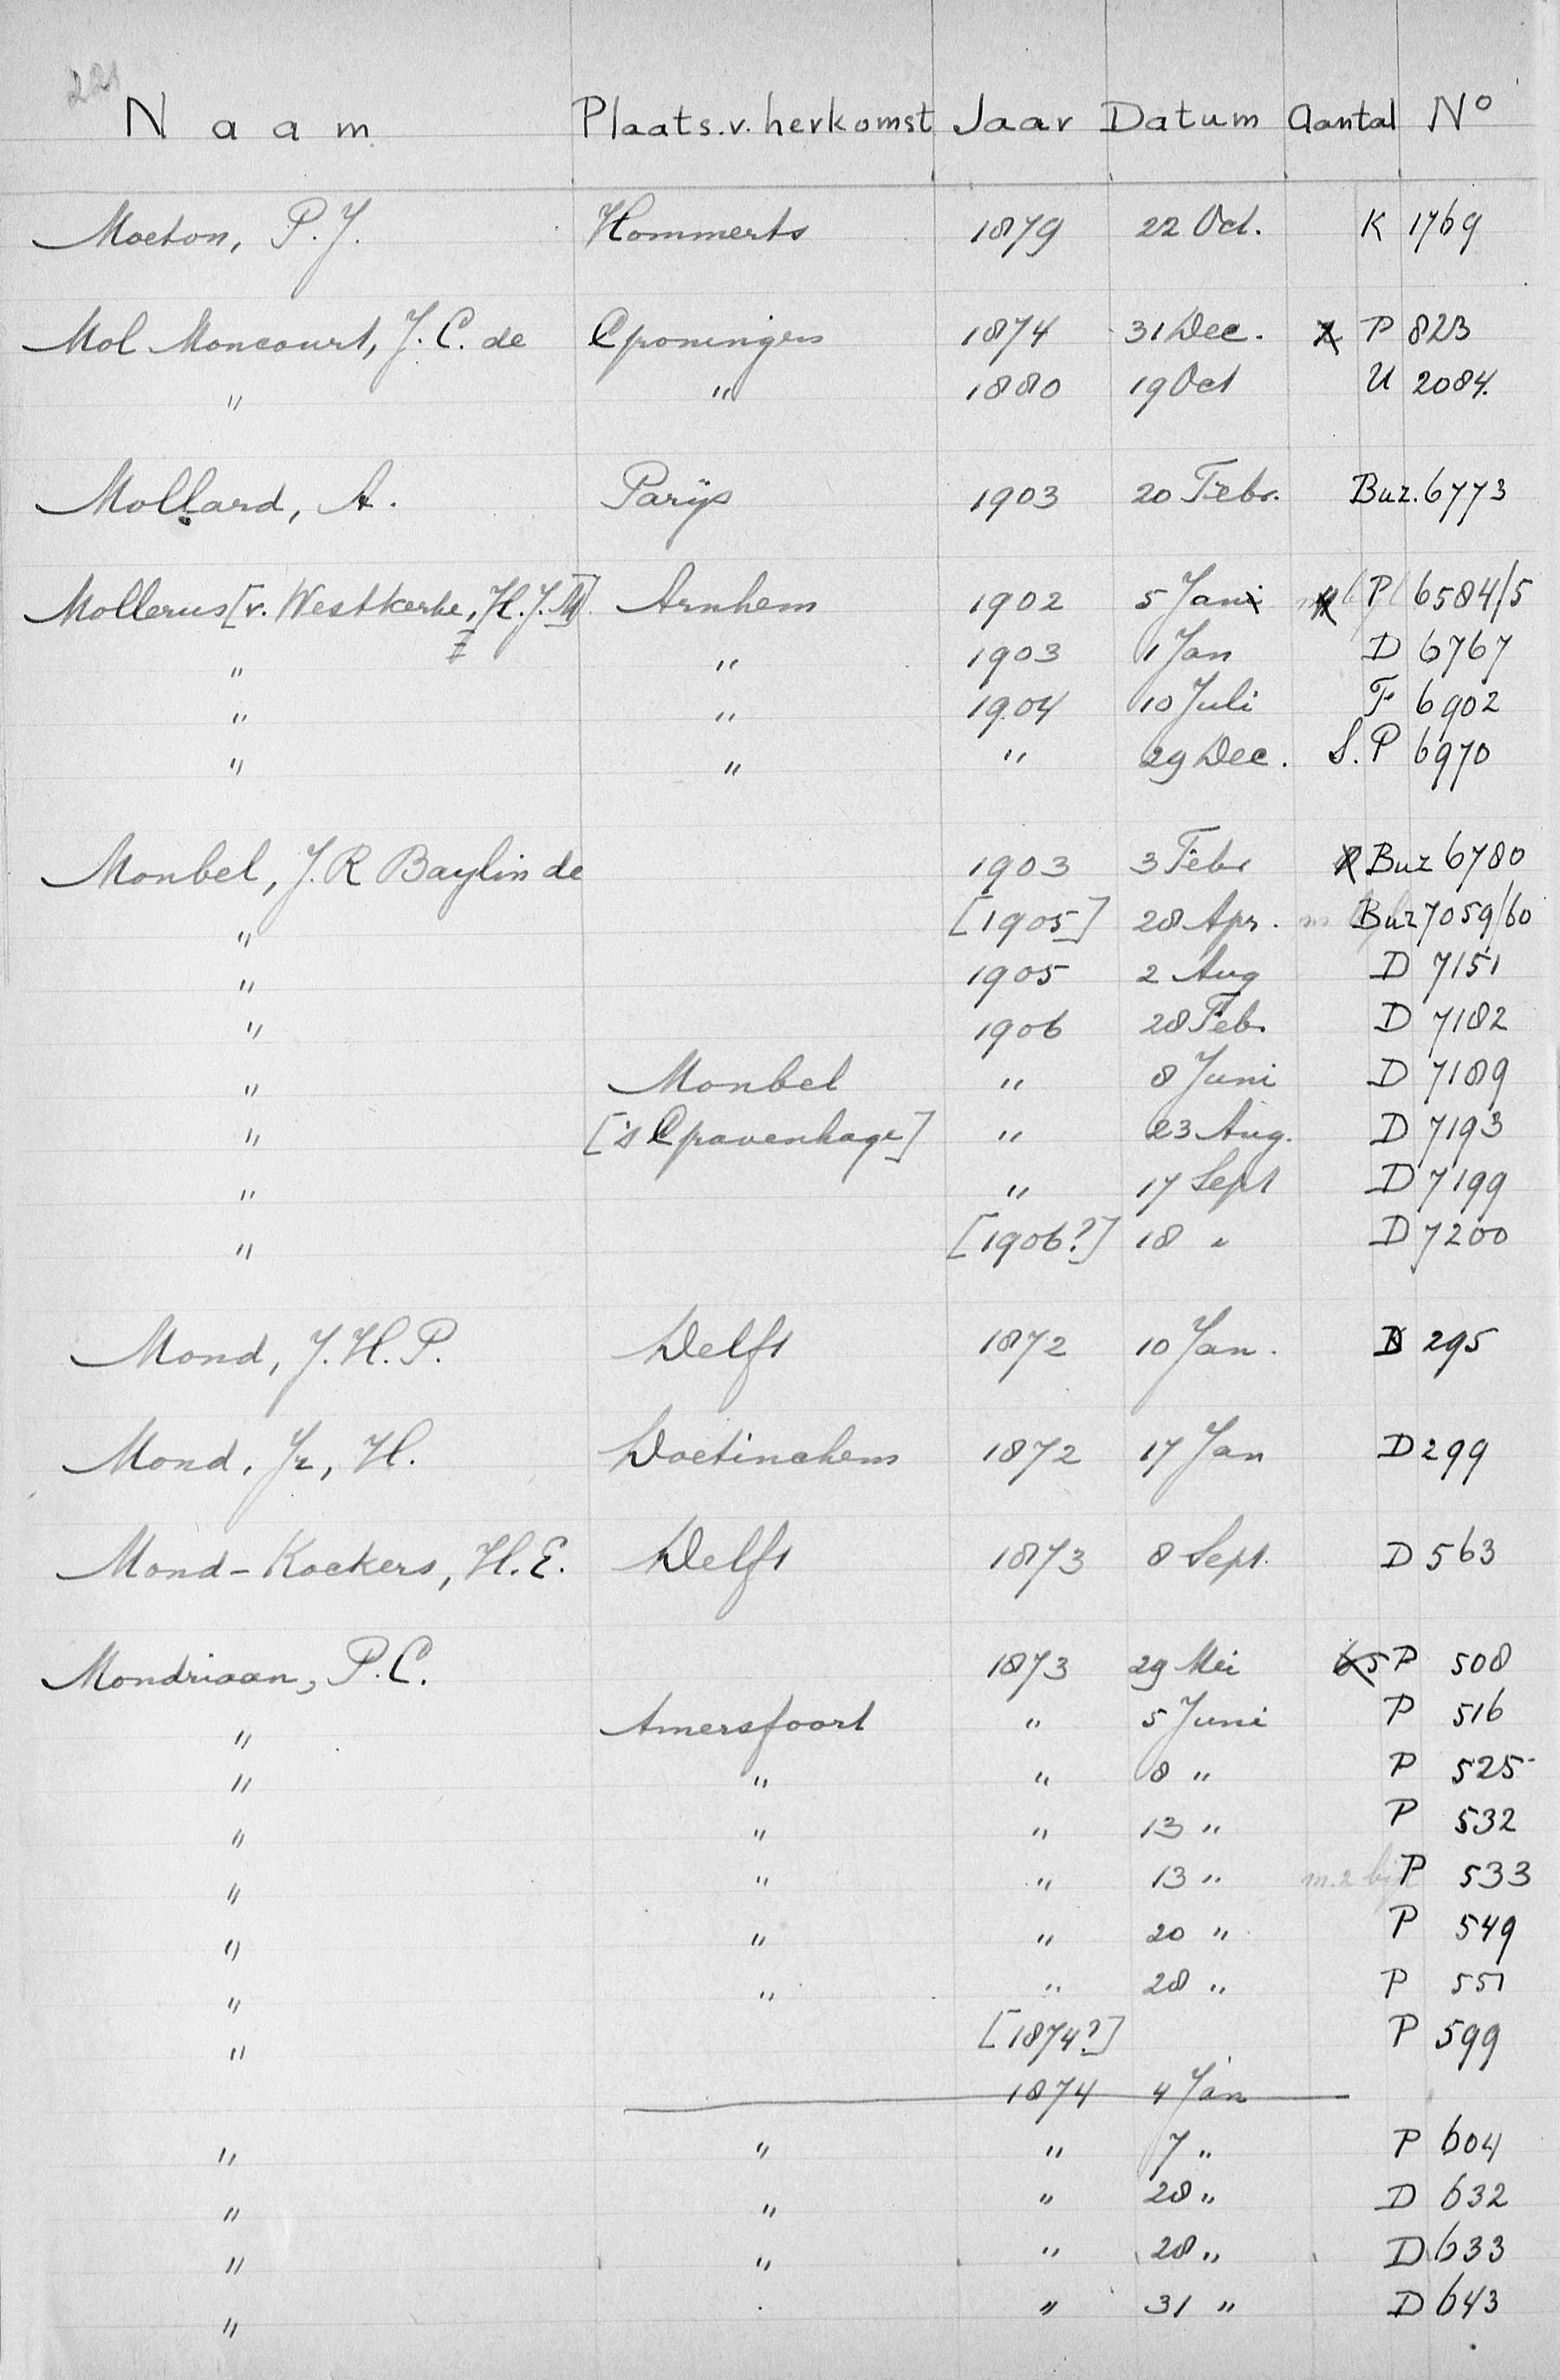 221
Naam Plaats.v.herkomst Jaar Datum Aantal No
Moeton, P.J. Hommerts 1879 22 Oct. K 1769
Mol Moncourt, J.C. de Groningen 1874 31 Dec. P 823
" " 1880 19 Oct U 2084.
Mollard, A. Parijs 1903 20 Febr. Buz. 6773
Mollerus [v. Westkerke, H.J.M] Arnhem 1902 5 Jan P 6584/5
" " 1903 1 Jan D 6767
" " 1904 10 Juli F 6902
" " " 29 Dec. S.P 6970
Monbel, J.R Baylin de 1903 3 Febr Buz 6780
" [1905] 28 Apr. Buz 7059/60
" 1905 2 Aug D 7151
" 1906 28 Feb. D 7182
" Monbel " 8 Juni D 7189
" ['s Gravenhage] " 23 Aug. D 7193
" " 17 Sept D 7199
" [1906?] 18 " D 7200
Mond, J.H.P. Delft 1872 10 Jan. D 295
Mond, Jr, H. Doetinchem 1872 17 Jan D 299
Mond-Kockers, H.E. Delft 1873 8 Sept. D 563
Mondriaan, P.C. 1873 29 Mei 6 5 P 508
" Amersfoort " 5 Juni P 516
" " " 8 " P 525
" " " 13 " P 532
" " " 13 " m. 2 bijl P 533
" " " 20 " P 549
" " " 28 " P 551
" [1874?] P 599
1874 4 Jan
" " " 7 " P 604
" " " 28 " D 632
" " " 28 " D 633
" " 31 " D 643